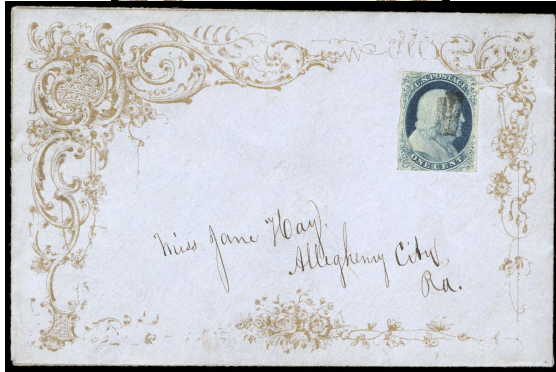 U.S. POSTAGE
ONE CENT
Miss Jane Hay.
Allegheny City,
Pa.